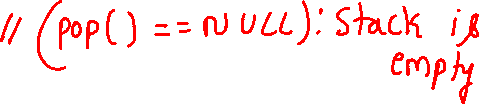 // (pop() == NULL): Stack is
empty